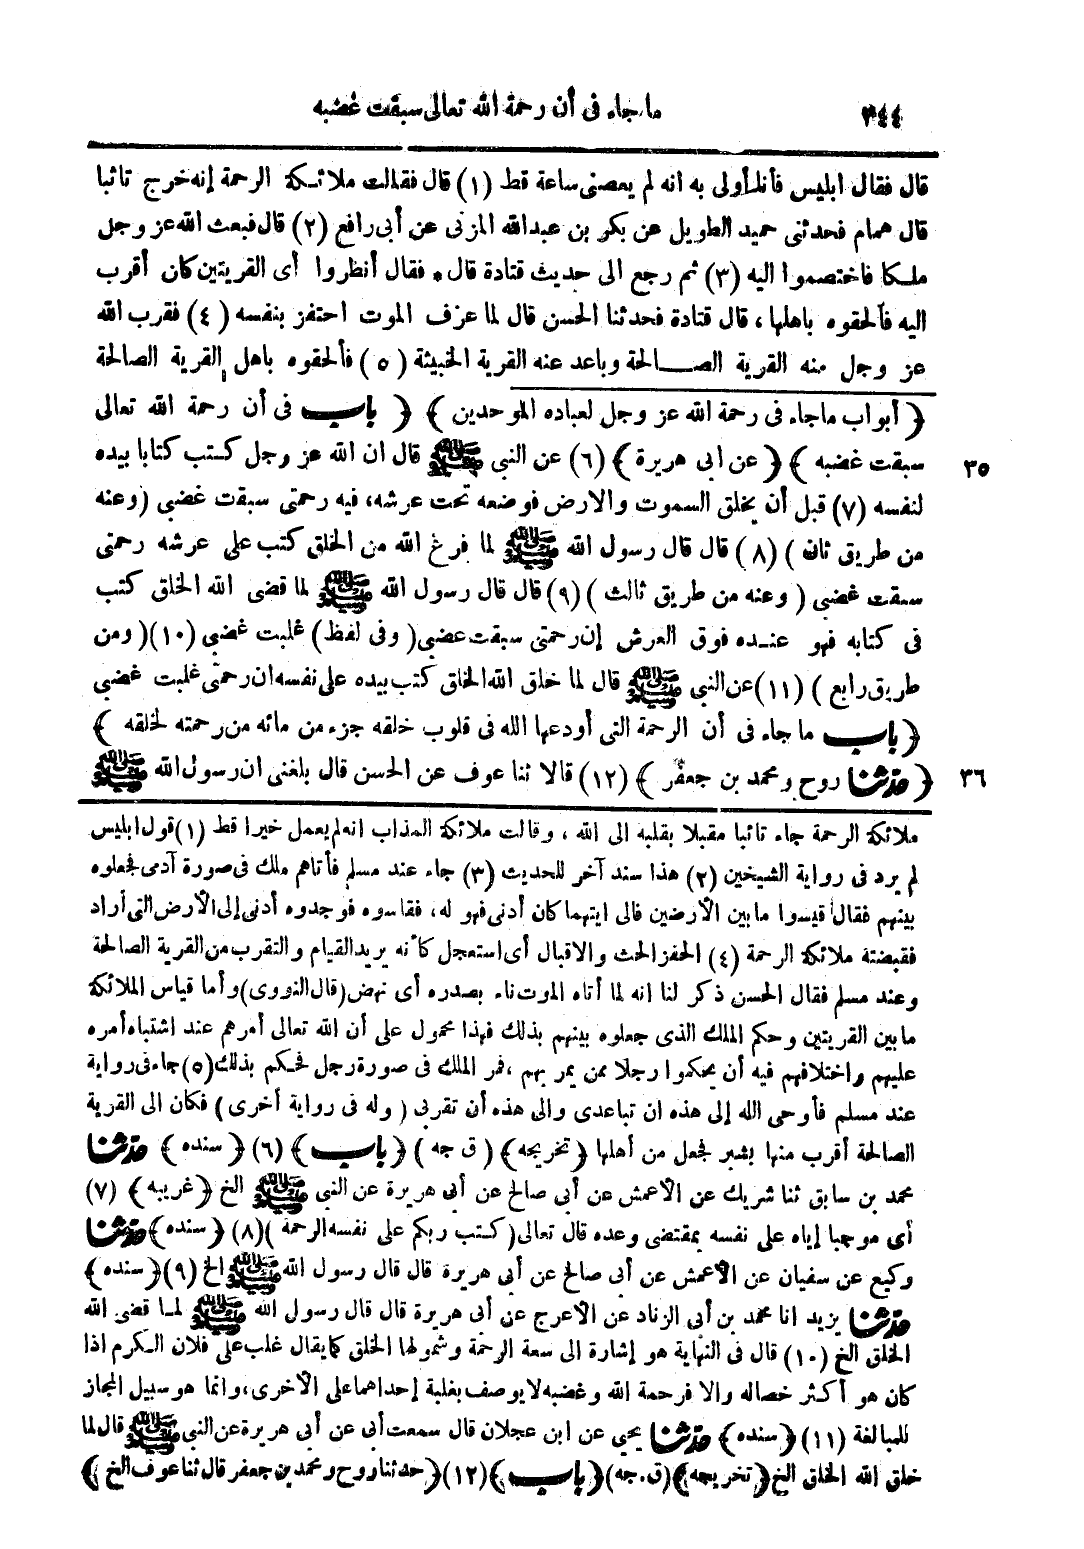 ٣٤٤ ما جاء فى أن رحمة الله تعالى سبقت غضبه
قال فقال ابليس فأنا أولى به انه لم يعصنى ساعة قط (١) قال فقالت ملائكة الرحمة إنه خرج تائبا
قال همام فحدثنى حميد الطويل عن بكر بن عبدالله المزنى عن أبى رافع (٢) قال فبعث الله عز وجل
ملكا فاختصموا اليه (٣) ثم رجع الى حديث قتادة قال • فقال أنظروا أى القريتين كان أقرب
اليه فألحقوه باهلها ، قال قتادة فحدثنا الحسن قال لما عرف الموت احتفز بنفسه (٤) فقرب الله
عز وجل منه القرية الصــالحة وباعد عنه القرية الخبيثة (٥) فألحقوه باهل القرية الصالحة
﴿ أبواب ماجاء فى رحمة الله عز وجل لعباده الموحدين ﴾ ﴿ باب فى أن رحمة الله تعالى
سبقت غضبه ﴾ ﴿ عن ابى هريرة ﴾ (٦) عن النبى ﷺ قال ان الله عز وجل كتب كتابا بيده ٣٥
لنفسه (٧) قبل أن يخلق السموت والارض فوضعه تحت عرشه، فيه رحمتى سبقت غضبى (وعنه
من طريق ثان ) (٨) قال قال رسول الله ﷺ لما فرغ الله من الخلق كتب على عرشه رحمتى
سبقت غضبى ( وعنه من طريق ثالث ) (٩) قال قال رسول الله ﷺ لما قضى الله الخلق كتب
فى كتابه فهو عنــده فوق العرش إن رحمتى سبقت غضبى ( وفى لفظ ) غلبت غضبى (١٠) ( ومن
طريق رابع ) (١١) عن النبى ﷺ قال لما خلق الله الخلق كتب بيده على نفسه ان رحمتى غلبت غضبى
﴿ باب ما جاء فى أن الرحمة التى أودعها الله فى قلوب خلقه جزء من مائه من رحمته لخلقه ﴾
﴿ حدثنا روح ومحمد بن جعفر ﴾ (١٢) قالا ثنا عوف عن الحسن قال بلغنى ان رسول الله ﷺ ٣٦
ملائكة الرحمة جاء تائبا مقبلا بقلبه الى الله ، وقالت ملائكة العذاب انه لم يعمل خيرا قط (١) قول ابليس
لم يرد فى رواية الشيخين (٢) هذا سند آخر للحديث (٣) جاء عند مسلم فأتاهم ملك فى صورة آدمى فجعلوه
بينهم فقال قيسوا ما بين الأرضين فالى ايتهما كان أدنى فهو له، فقاسوه فوجدوه أدنى إلى الأرض التى أراد
فقبضتة ملائكة الرحمة (٤) الحفز الحث والاقبال أى استعجل كأنه يريد القيام والتقرب من القرية الصالحة
وعند مسلم فقال الحسن ذكر لنا انه لما أتاه الموت ناء بصدره أى نهض (قال النووى) وأما قياس الملائكة
ما بين القريتين وحكم الملك الذى جعلوه بينهم بذلك فهذا محمول على أن الله تعالى أمرهم عند اشتباه أمره
عليهم واختلافهم فيه أن يحكموا رجلا ممن يمر بهم ، فمر الملك فى صورة رجل فحكم بذلك (٥) جاء فى رواية
عند مسلم فأوحى الله إلى هذه ان تباعدى والى هذه أن تقربى ( وله فى رواية أخرى ) فكان الى القرية
الصالحة أقرب منها بشبر فجعل من أهلها ﴿ تخريجه ﴾ ( ق جه ) ﴿ باب ﴾ (٦) ﴿ سنده ﴾ حدثنا
محمد بن سابق ثنا شريك عن الأعمش عن أبى صالح عن أبى هريرة عن النبى ﷺ الخ ﴿ غريبه ﴾ (٧)
أى موجبا إياه على نفسه بمقتضى وعده قال تعالى ( كتب ربكم على نفسه الرحمة ) (٨) ﴿ سنده ﴾ حدثنا
وكيع عن سفيان عن الأعمش عن أبى صالح عن أبى هريرة قال قال رسول الله ﷺ الخ (٩) ﴿ سنده ﴾
حدثنا يزيد انا محمد بن أبى الزناد عن الأعرج عن أبى هريرة قال قال رسول الله ﷺ لما قضى الله
الخلق الخ (١٠) قال فى النهاية هو إشارة الى سعة الرحمة وشمولها الخلق كما يقال غلب على فلان الكرم اذا
كان هو أكثر خصاله والا فرحمة الله وغضبه لا يوصف بغلبة إحداهما على الأخرى، وانما هو سبيل المجاز
للمبالغة (١١) ﴿ سنده ﴾ حدثنا يحيى عن ابن عجلان قال سمعت أبى عن أبى هريرة عن النبى ﷺ قال لما
خلق الله الخلق الخ ﴿ تخريجه ﴾ (ق. جه) ﴿ باب ﴾ (١٢) ﴿ حدثنا روح ومحمد بن جعفر قال ثنا عوف الخ ﴾